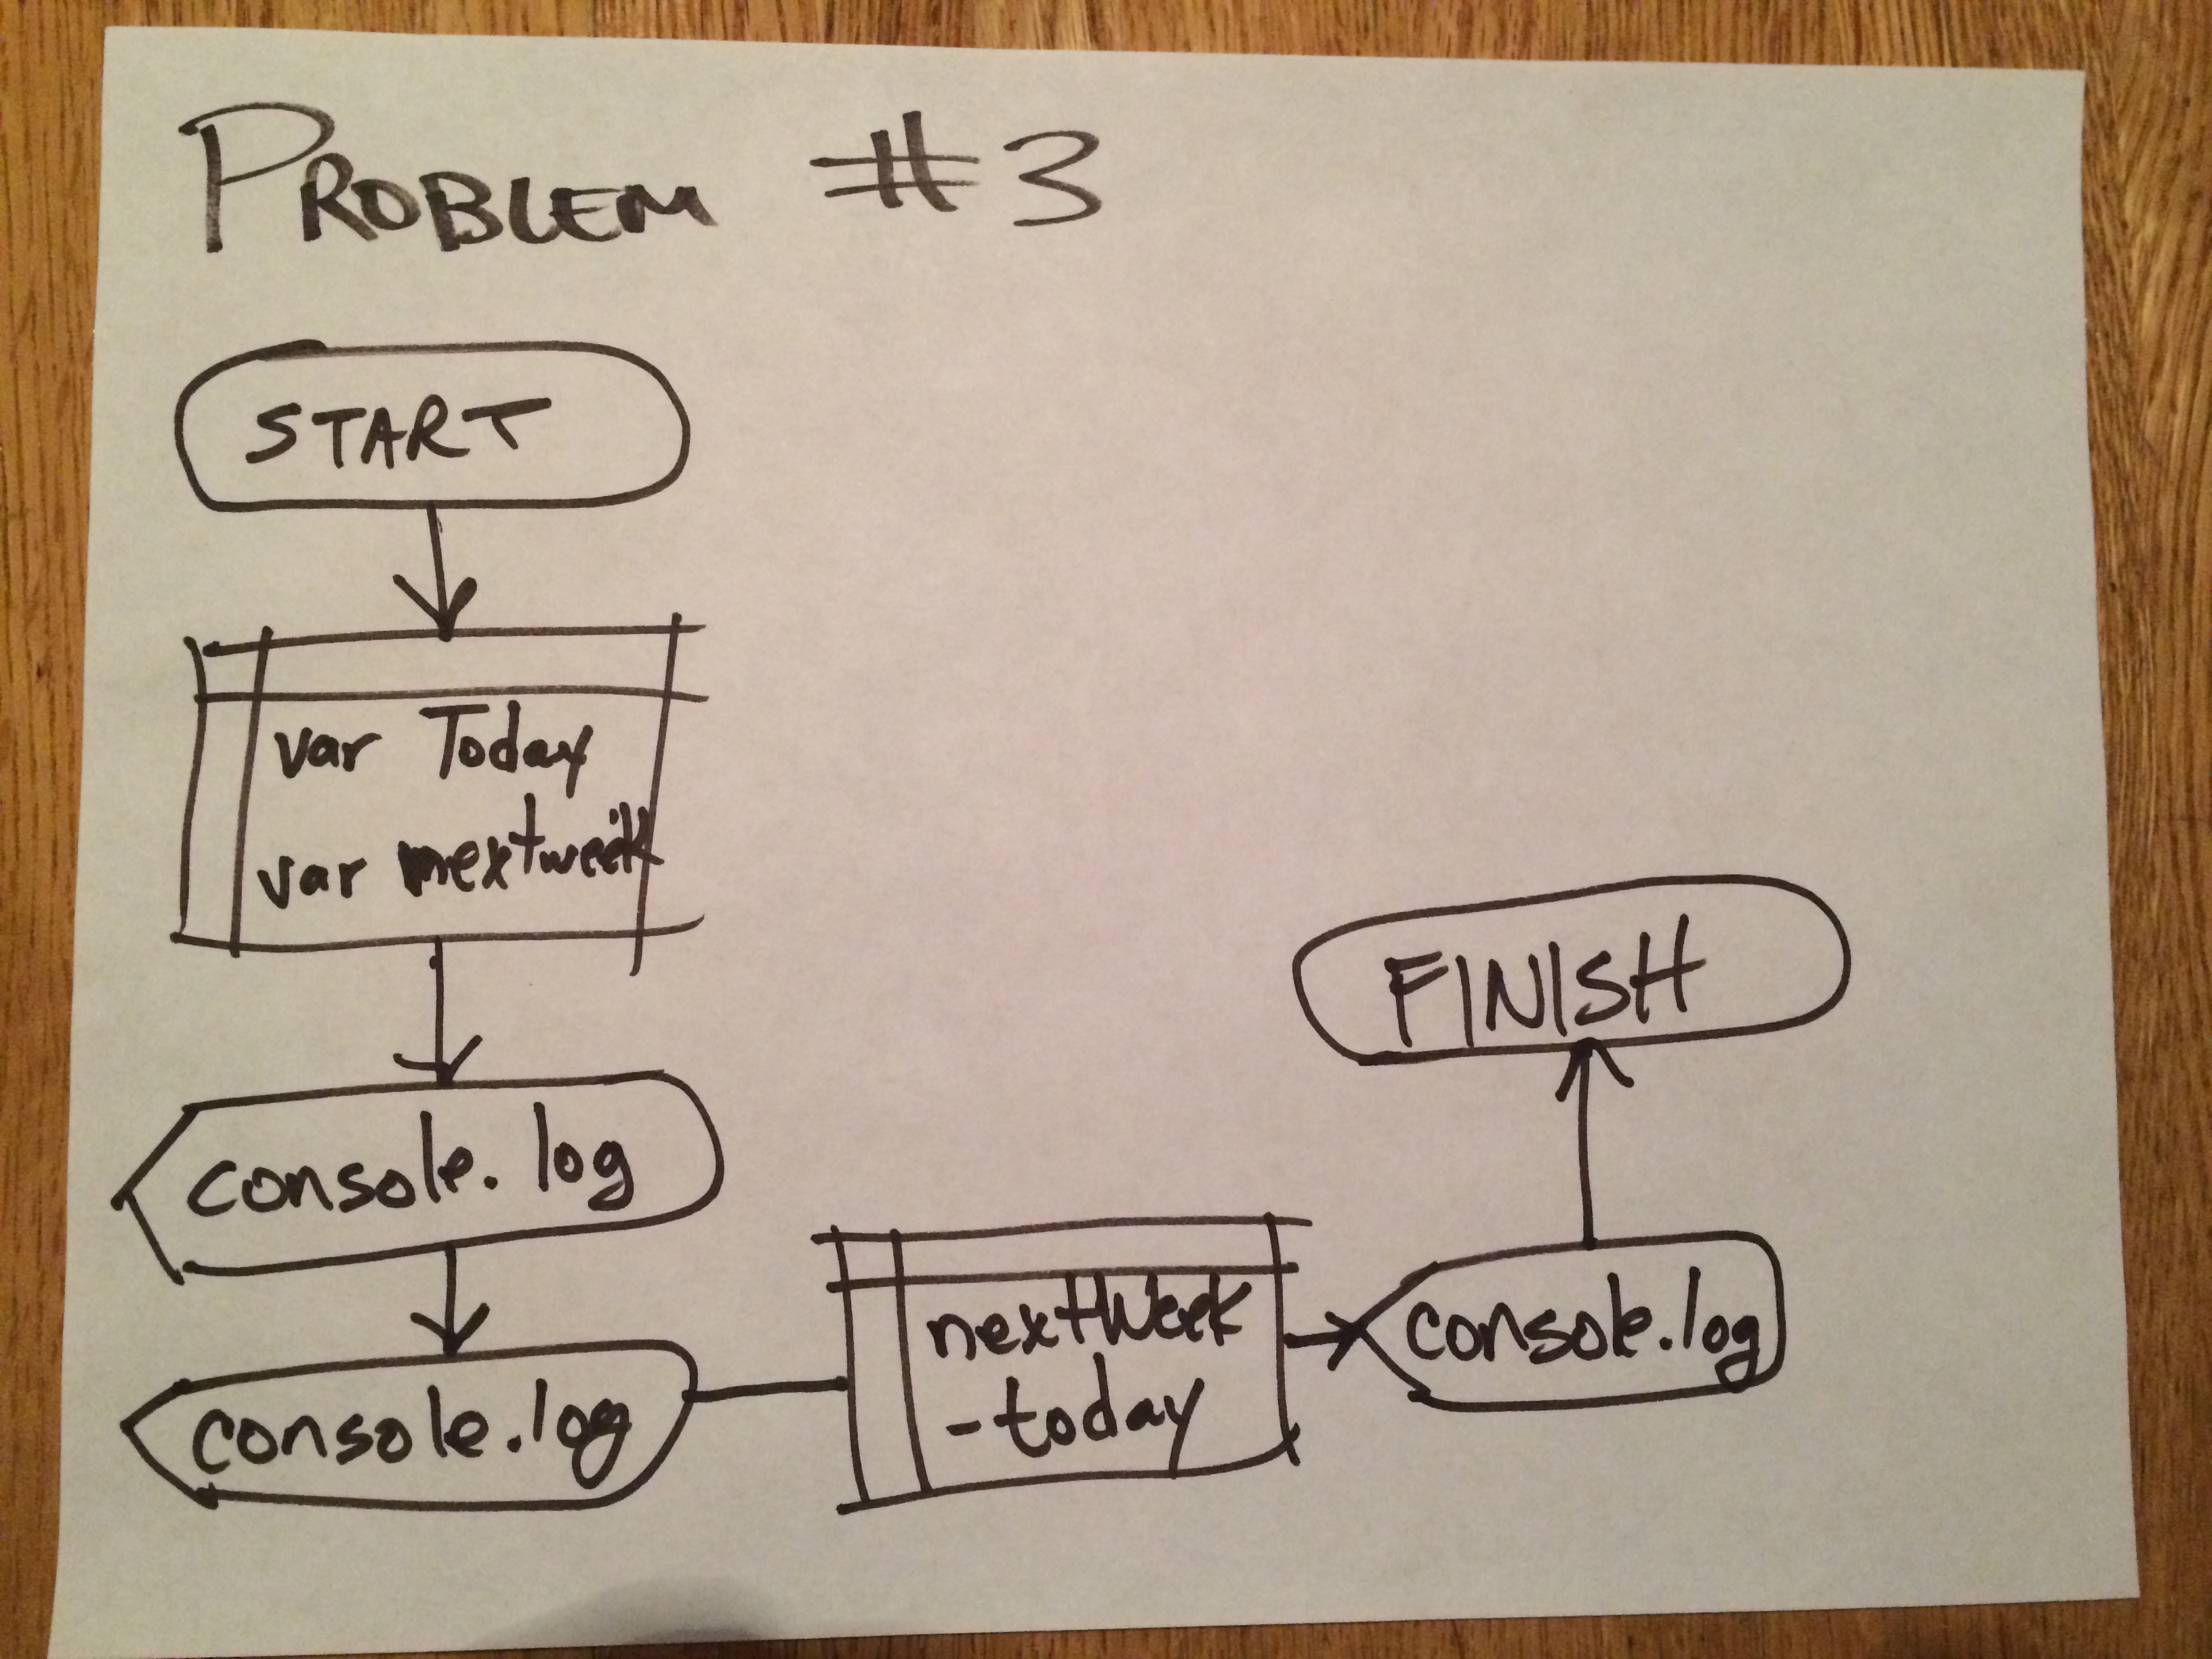 PROBLEM #3
START
var Today
var nextweek
console.log
console.log
nextWeek
-today
console.log
FINISH